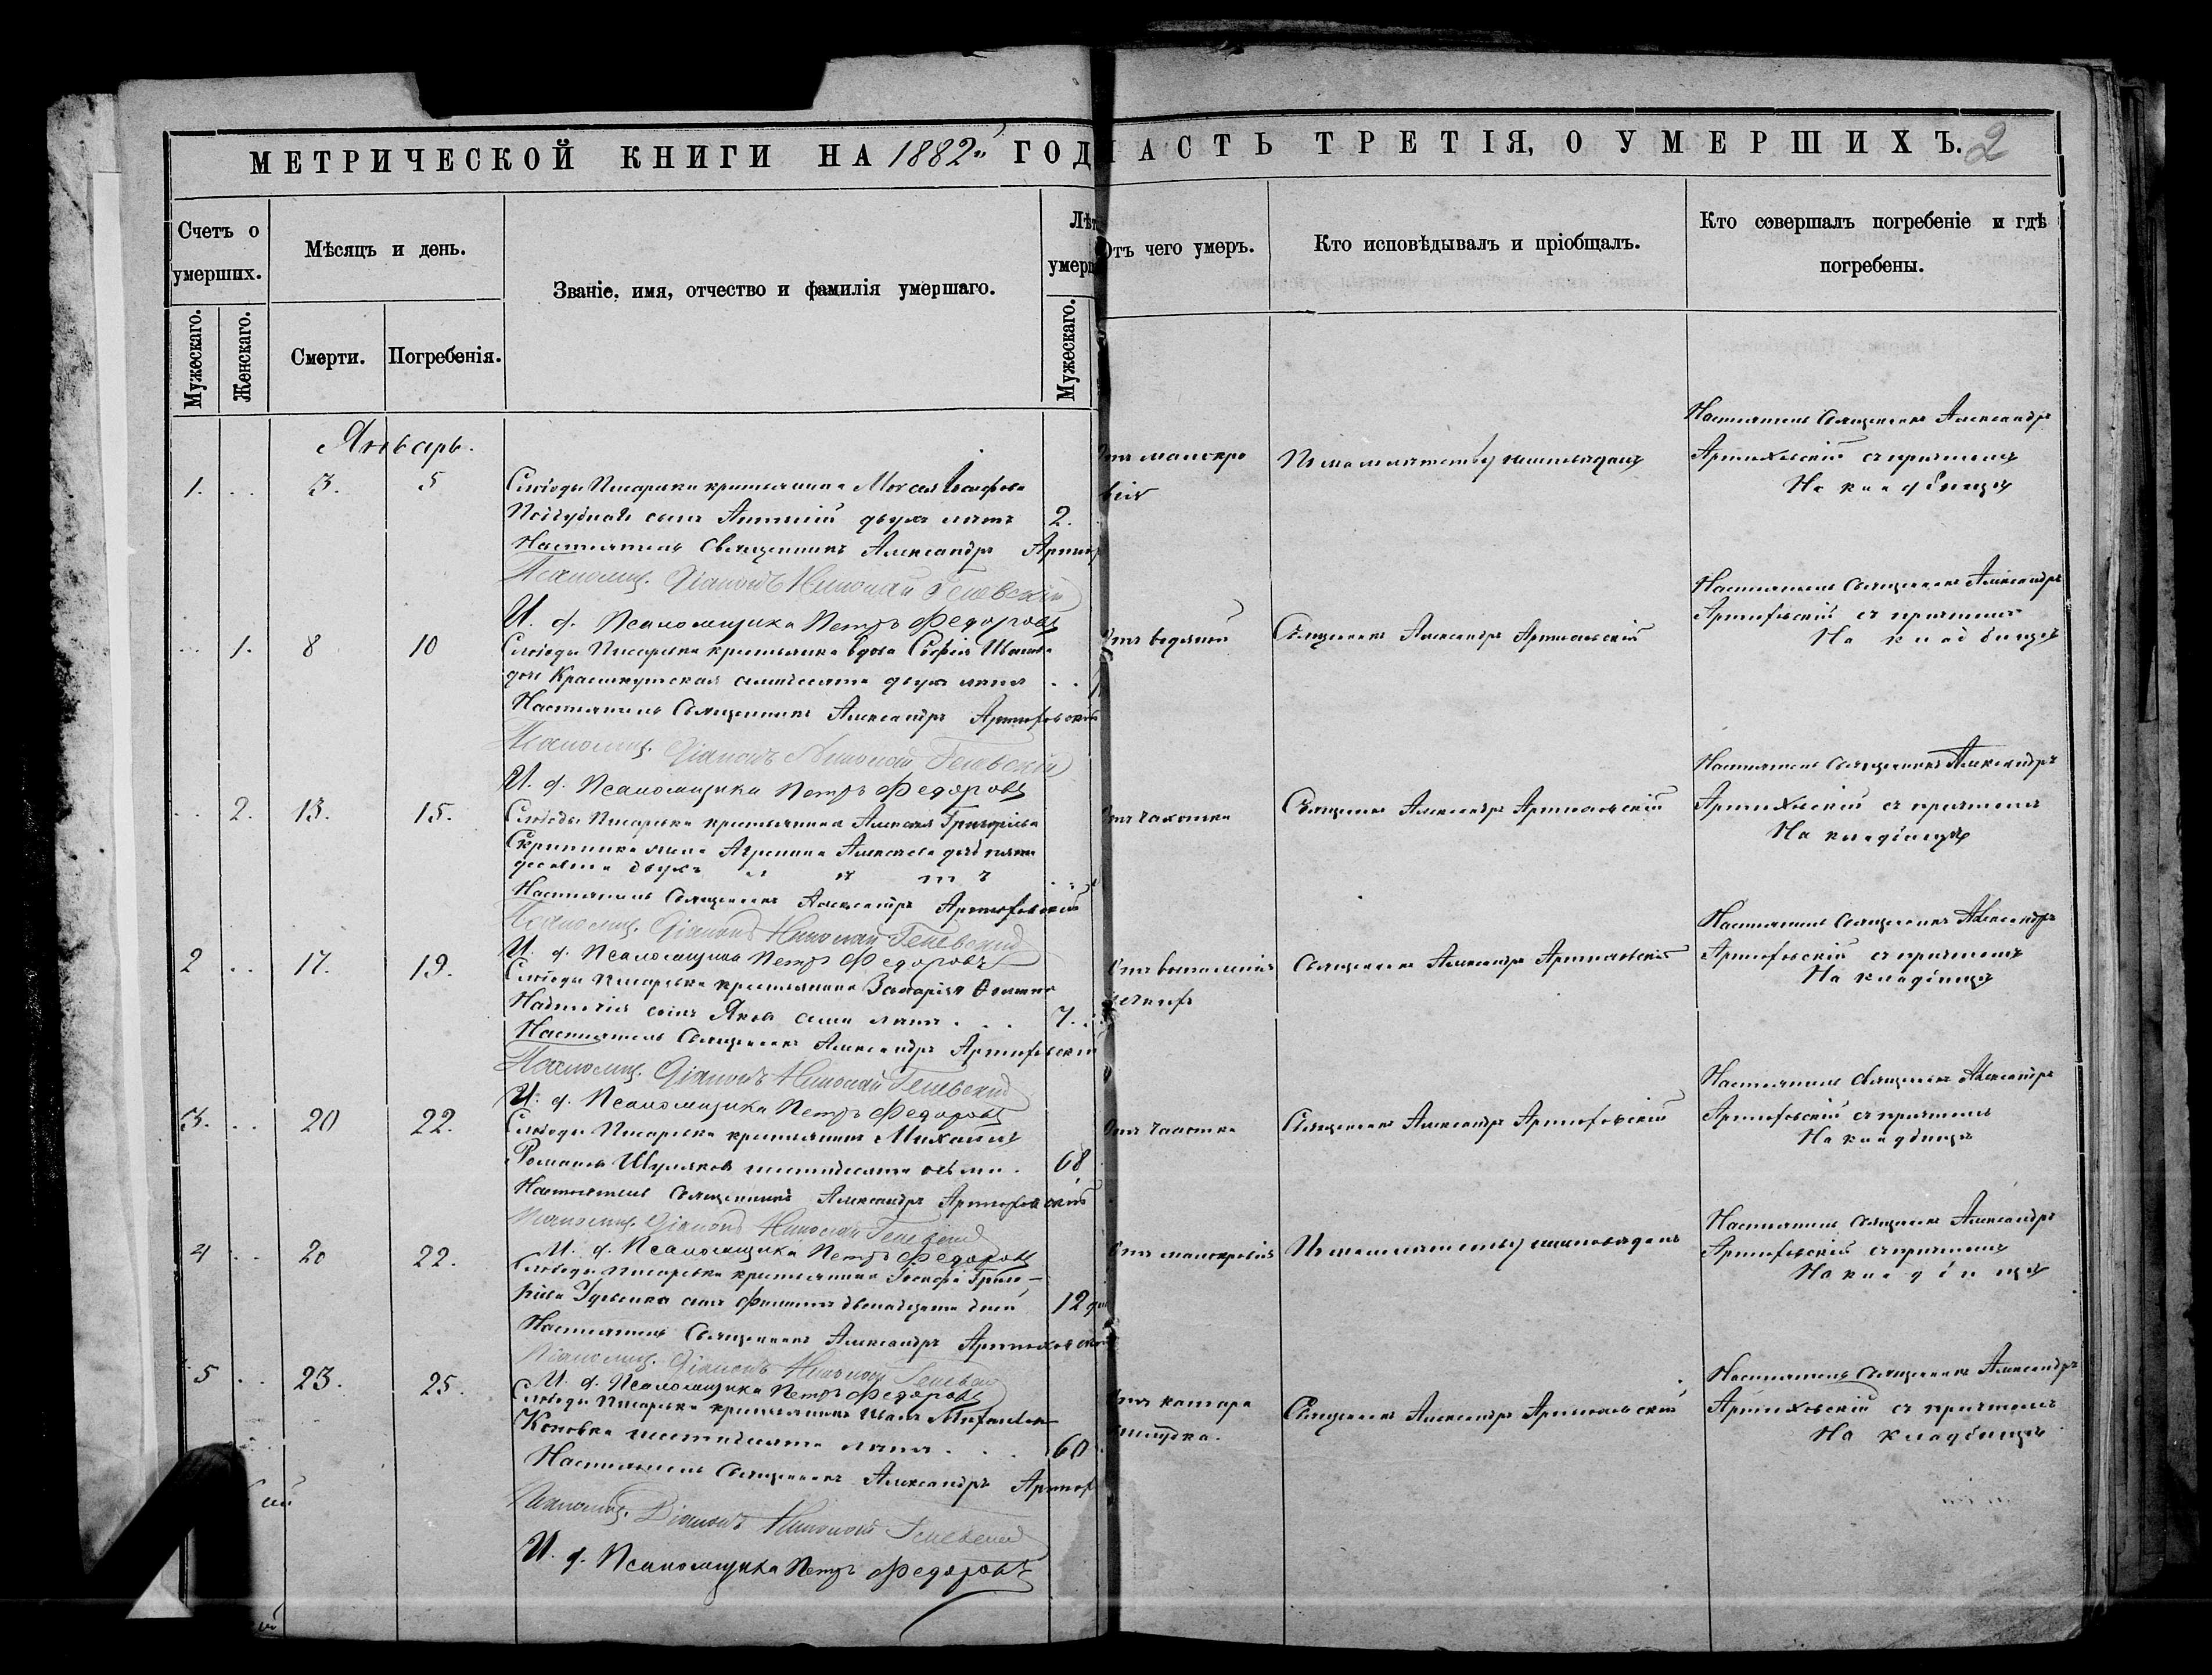 МЕТРИЧЕСКОЙ КНИГИ НА 1882й ГОД
ЧАСТЬ ТРЕТІЯ, О УМЕРШИХЪ. 2
Счетъ о умершихъ.
Мужескаго.
Женскаго.
Мѣсяцъ и день.
Смерти.
Погребенія.
Званіе, имя, отчество и фамилія умершаго.
Лѣт
умерш
Мужескаго.
Отъ чего умеръ.
Кто исповѣдывалъ и пріобщалъ.
Кто совершалъ погребеніе и гдѣ
погребены.
Январь.
1. . . 3. 5
Слободы Писаревки крестьянина Моисея Іосифова
сынъ двухъ лѣтъ 2.
Настоятель Священникъ Александръ
Псаломщ. Діаконъ Николай
И. д. Псаломщика Петръ Федоровъ
отъ малокро
вія
По малолѣтству неисповѣданъ
Настоятель Священникъ Александръ
Артюховскій съ причтомъ
На кладбищѣ
. . 1. 8 10
Слободы Писаревки крестьянка вдова Софія Иванова
Краснокутская семидесяти двухъ лѣтъ . .
Настоятель Священникъ Александръ Артюховскій
Псаломщ. Діаконъ Николай
И. д. Псаломщика Петръ Федоровъ
отъ водяной
Священникъ Александръ Артюховскій
Настоятель Священникъ Александръ
Артюховскій съ причтомъ
На кладбищѣ
. . 2. 13. 15.
Слободы Писаревки крестьянина Алексѣя Григорьева
Скрипника жена Агрипина Алексѣева
двухъ лѣтъ
Настоятель Священникъ Александръ Артюховскій
Псаломщ. Діаконъ Николай
И. д. Псаломщика Петръ Федоровъ
отъ чахотки
Священникъ Александръ Артюховскій
Настоятель Священникъ Александръ
Артюховскій съ причтомъ
На кладбищѣ
2 . . 17. 19.
Слободы Писаревки крестьянина Захарія
сынъ Яковъ семи лѣтъ . . . 7.
Настоятель Священникъ Александръ Артюховскій
Псаломщ. Діаконъ Николай
И. д. Псаломщика Петръ Федоровъ
Священникъ Александръ Артюховскій
Настоятель Священникъ Александръ
Артюховскій съ причтомъ
На кладбищѣ
3. . . 20 22.
Слободы Писаревки крестьянинъ Михаилъ
Романовъ Шумяковъ шестидесяти осьми . 68
Настоятель Священникъ Александръ Артюховскій
Псаломщ. Діаконъ Николай
И. д. Псаломщика Петръ Федоровъ
отъ чахотки
Священникъ Александръ Артюховскій
Настоятель Священникъ Александръ
Артюховскій съ причтомъ
На кладбищѣ
4 . . 20 22.
Слободы Писаревки крестьянина Іосифа Григо-
рьева сынъ Филиппъ двенадцати дней 12 дн
Настоятель Священникъ Александръ Артюховскій
Псаломщ. Діаконъ Николай
И. д. Псаломщика Петръ Федоровъ
отъ малокровія
По малолѣтству неисповѣданъ
Настоятель Священникъ Александръ
Артюховскій съ причтомъ
На кладбищѣ
5 . . 23. 25.
Слободы Писаревки крестьянинъ Иванъ
Коновка шестидесяти лѣтъ . . . 60
Настоятель Священникъ Александръ
Псаломщ. Діаконъ Николай
И. д. Псаломщика Петръ Федоровъ
отъ катара
желудка.
Священникъ Александръ Артюховскій
Настоятель Священникъ Александръ
Артюховскій съ причтомъ
На кладбищѣ